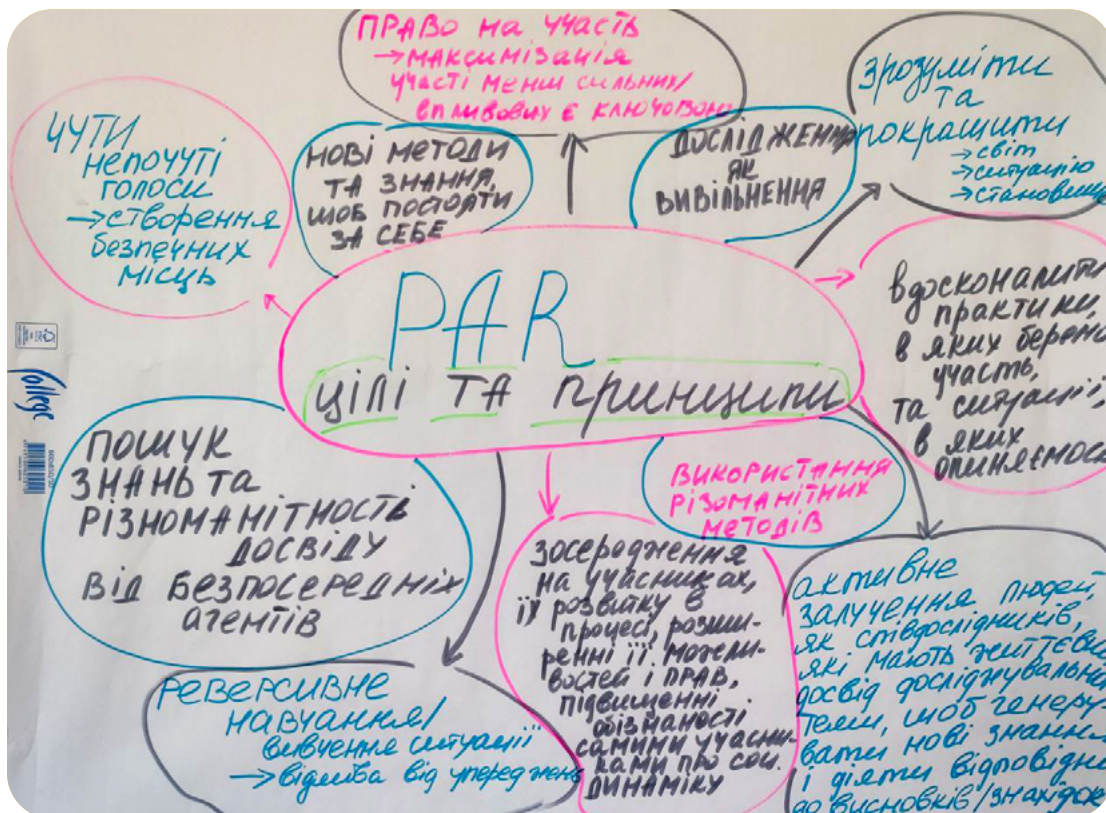 ПРАВО на участь
→ максимізація
участі менш сильних/
впливових є ключовою
зрозуміти
та
покращити
→ світ
→ ситуацію
→ становище
ЧУТИ
непочуті
голоси
→ створення
безпечних
місць
НОВІ МЕТОДИ
ТА ЗНАННЯ,
ЩОБ ПОСТОЯТИ
ЗА СЕБЕ
ДОСЛІДЖЕННЯ
ЯК
ВИВІЛЬНЕННЯ
PAR
цілі та принципи
вдосконалити
практики,
в яких беремо
участь,
та ситуації,
в яких
опиняємось
College
ПОШУК
ЗНАНЬ та
РІЗНОМАНІТНОСТЬ
ДОСВІДУ
ВІД БЕЗПОСЕРЕДНІХ
АГЕНТІВ
ВИКОРИСТАННЯ
РІЗОМАНІТНИХ
МЕТОДІВ
зосередження
на учасниках,
їх розвитку в
процесі, розши-
ренні її можли-
востей і ПРАВ,
підвищенні
обізнаності
самими учасни-
ками про соц.
динаміку
активне
залучення людей,
як співдослідників,
які мають життєвий
досвід досліджувальної
теми, щоб генеру-
вати нові знання
і діяти відповідно
до висновків/знахідок
РЕВЕРСИВНЕ
НАВЧАННЯ/
вивчення ситуації
→ відмова від упереджень